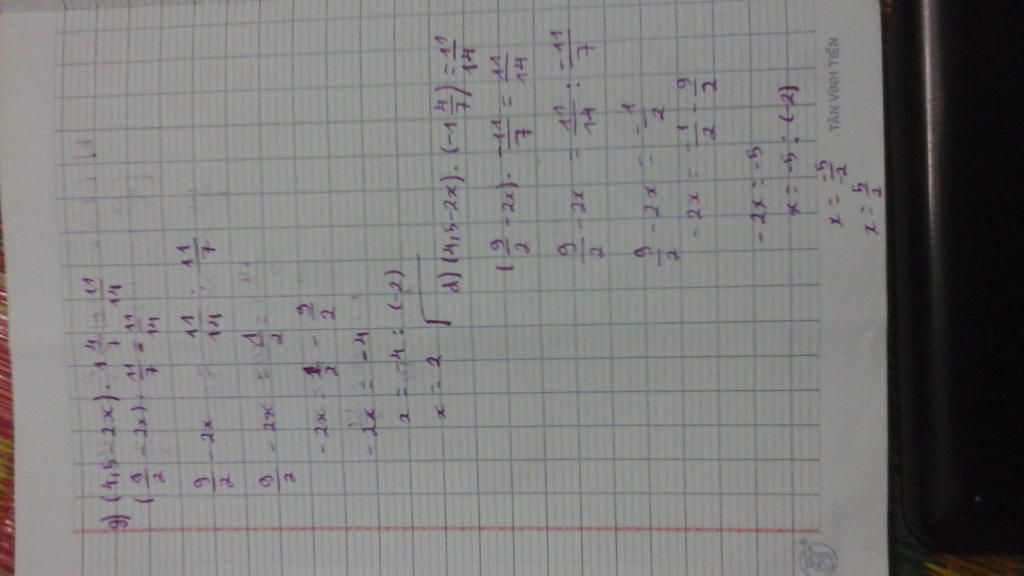 g) (4,5 - 2x) . 1 4/7 = 11/14
(9/2 - 2x) . 11/7 = 11/14
9/2 - 2x 11/14 : 11/7
9/2 - 2x = 1/2
- 2x = 1/2 - 9/2
- 2x = -4
x = -4 : (-2)
x = 2
d) (4,5 - 2x) . (-1 4/7) = 11/14
(9/2 - 2x) . -11/7 = 11/14
9/2 - 2x = 11/14 : -11/7
9/2 - 2x = -1/2
- 2x = -1/2 - 9/2
- 2x = -5
x = -5 : (-2)
x = -5/-2
x = 5/2
TÂN VĨNH TIẾN